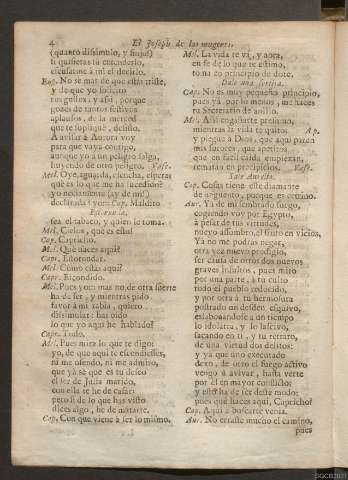 4 El Joseph de las mugeres.
(quanto dissimulo, y finjo)
si quisieras tu entenderlo,
escusarme à mi el decirlo.
Eug. No se mas de que estás triste,
y de que yo solicito
tus gustos; y assi, porque
goces de tantos festivos
aplausos, de la merced
que te supliquè, desisto.
A avisar à Aurora voy
para que vaya contigo,
aunque yo à un peligro salga,
huyendo de otro peligro. Vase.
Mel. Oye, aguarda, escucha, espera
què es lo que me ha sucedido?
yo necia mente (ay de mi!)
declarada? pero Cap. Maldito
sea el tabaco, y quien le toma.
Mel. Cielos, què es esto?
Cap. Capricho.
Mel. Què haces aqui?
Cap. Estornudar.
Mel. Cómo estás aqui?
Cap. Escondido.
Mel. Pues yo
ha de ser, y mientras pido
favor à mi rabia, quiero
dissimular: has oido
lo que yo aqui he hablado?
Cap. Todo.
Mel. Pues mira lo que te digo:
yo, de que aqui te escondiesses,
ni me ofendo, ni me admiro,
que yà sè que es tu deseo
el ser de Julia marido,
con ella te he de casar;
pero si de lo que has visto
dices algo, he de matarte.
Cap. Con que viene à ser lo mismo.
Mel. La vida te và, y aora,
en fe de lo que te estimo,
toma en principio de dote.
Dale una sortija.
Cap. No es muy pequeño principio,
pues yà, por lo menos, me haces
tu Secretario de anillo.
Mel. Assi engañarte previno,
mientras la vida te quito: Ap.
y plegue à Dios, que aqui paren
mis furores, que apetitos
que en facil caida empiezan,
rematan en precipicios. Vase.
Sale Aurelio.
Cap. Cosas tiene este diamante
de unguento, porque es cetrino.
Aur. Yà de mi sombrado fuego,
cogiendo voy por Egypto,
à pesar de tus virtudes,
nuevo assombro, el fruto en vicios,
Yà no me podràs negar,
otra vez nuevo prodigio,
ser causa de otros dos nuevos
graves insultos, pues miro
por una parte, à tu culto
todo el pueblo reducido,
y por otra à tu hermosura
postrado un desdèn esquivo,
eslabonandose à un tiempo
lo idolatra, y lo lascivo,
sacando en ti, y tu retrato,
de una virtud dos delitos:
y ya que uno executado
dexo, de otro el fuego activo
vengo à avivar, hasta verte
por èl en mayor conflicto:
y esto ha de ser deste modo:
pues què haces aqui, Capricho?
Cap. Aqui à buscarte venia.
Aur. No erraste mucho el camino,
pues